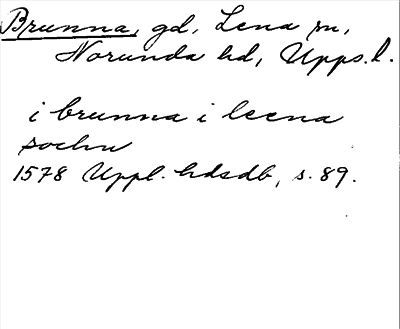 Brunna, gd, Lena sn,
Norunda hd, Upps. l.
i brunna i leena
sochn
1578 Uppl. hdsdb, s. 89.